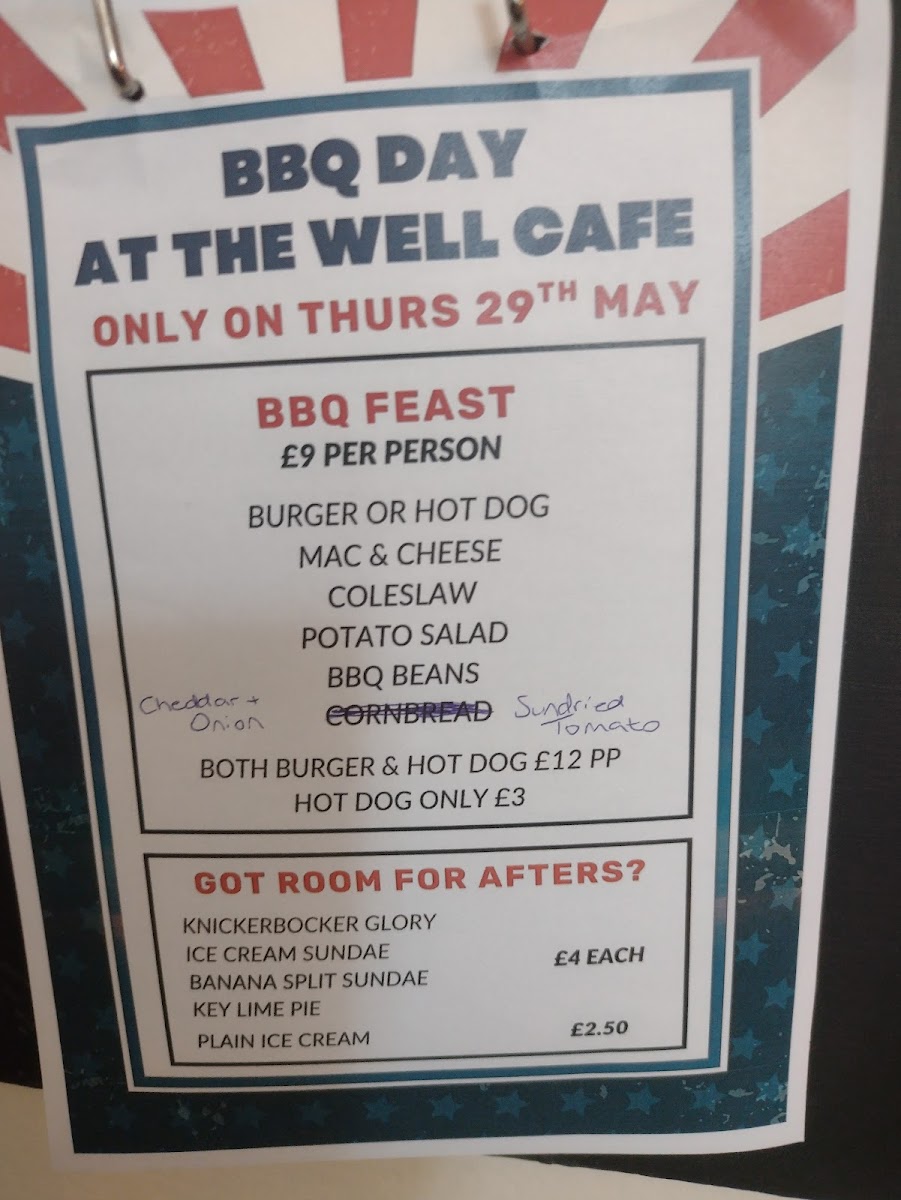 BBQ DAY
AT THE WELL CAFE
ONLY ON THURS 29TH MAY
BBQ FEAST
£9 PER PERSON
BURGER OR HOT DOG
MAC & CHEESE
COLESLAW
POTATO SALAD
BBQ BEANS
Cheddar +
Onion
CORNBREAD
Sundried
Tomato
BOTH BURGER & HOT DOG £12 PP
HOT DOG ONLY £3
GOT ROOM FOR AFTERS?
KNICKERBOCKER GLORY
ICE CREAM SUNDAE
BANANA SPLIT SUNDAE
KEY LIME PIE
£4 EACH
PLAIN ICE CREAM £2.50